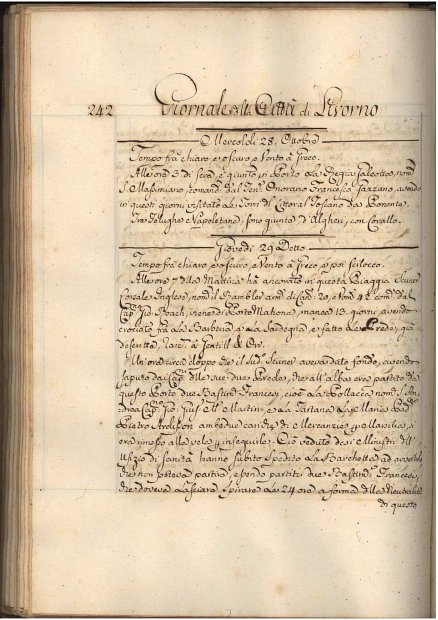 242 Giornale della Città di Livorno
Mercoledì 28. Ottobre
Tempo frà chiaro, e oscuro, e Vento à Greco.
Alle ore 3 di Sera è giunto in Porto La Regia Galeotta, nom.
S. Massimiano, Comand. dal Ten. Onorario Francesco Sarzano, avendo
in questi giorni visitato Le Torri del Littoral Toscano da Ponente.
Tre Felughe Napoletane, sono giunte d'Algheri, con Corallo.
Giovedì 29 Detto
Tempo frà chiaro, e oscuro, e Vento à Greco, e poi Scilocco.
Alle ore 7 della Mattina hà ancorato in questa Piaggia
Corsale Inglese, nom. arm. di Cad. 20, e Uom. 42. com. dal
Cap. Gio. Bach, viene di Porto Mahone, manca 13. giorni, avendo
crociato frà La Barbaria, e La Sardegna, e fatto Le Prede, già
descritte, Racc. à Gentill & Orr.
Un'ora circa doppo che il Sud. aveva dato fondo, avendo
saputo dai Cap. delle sue due Prede, che all'alba era partito da
questo Porto due Bastim. Francesi, cioè La Pollacca nom.
Cap. Gio. Gius. Martin, e La Tartana La Pad.
Pietro ambedue cariche di Mercanzie, p. Marsilia, si
era rimesso alla vela p. inseguirle. Ciò veduto dai Ministri dell'
Ufizio di Sanità hanno subito spedito La Barchetta ad avvertirlo
che non poteva partire, essendo partiti due Bastim. Francesi,
che doveva Lasciare spirare Le 24 ore a forma della Neutralità
di questo